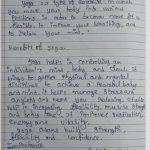 Yoga is type of exercise, in which
you move your body into various
Positions in order to become more fit or
flexible to improve your breathing, and
to relax your mind.
Benefit of yoga.
Yoga helps in controlling an
individual's mind, body and soul. It
brings together physical and mental
disciplines to achieve a peaceful body
and mind. It helps manage stress and
anxiety and keeps you relaxing. It also
helps in increasing flexibility, muscle strength
and body tone. It improves respiration,
energy and vitality.
Yoga Asanas builds strength,
flexibility and confidence.
Importance